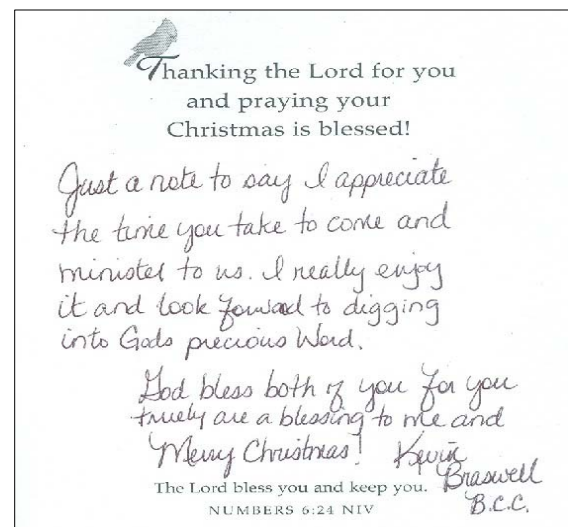 Thanking the Lord for you
and praying your
Christmas is blessed!
Just a note to say I appreciate
the time you take to come and
minister to us. I really enjoy
it and look forward to digging
into Gods precious Word.
God bless both of you for you
truely are a blessing to me and
Merry Christmas! Kevin
Braswell
The Lord bless you and keep you.
B.C.C.
NUMBERS 6:24 NIV